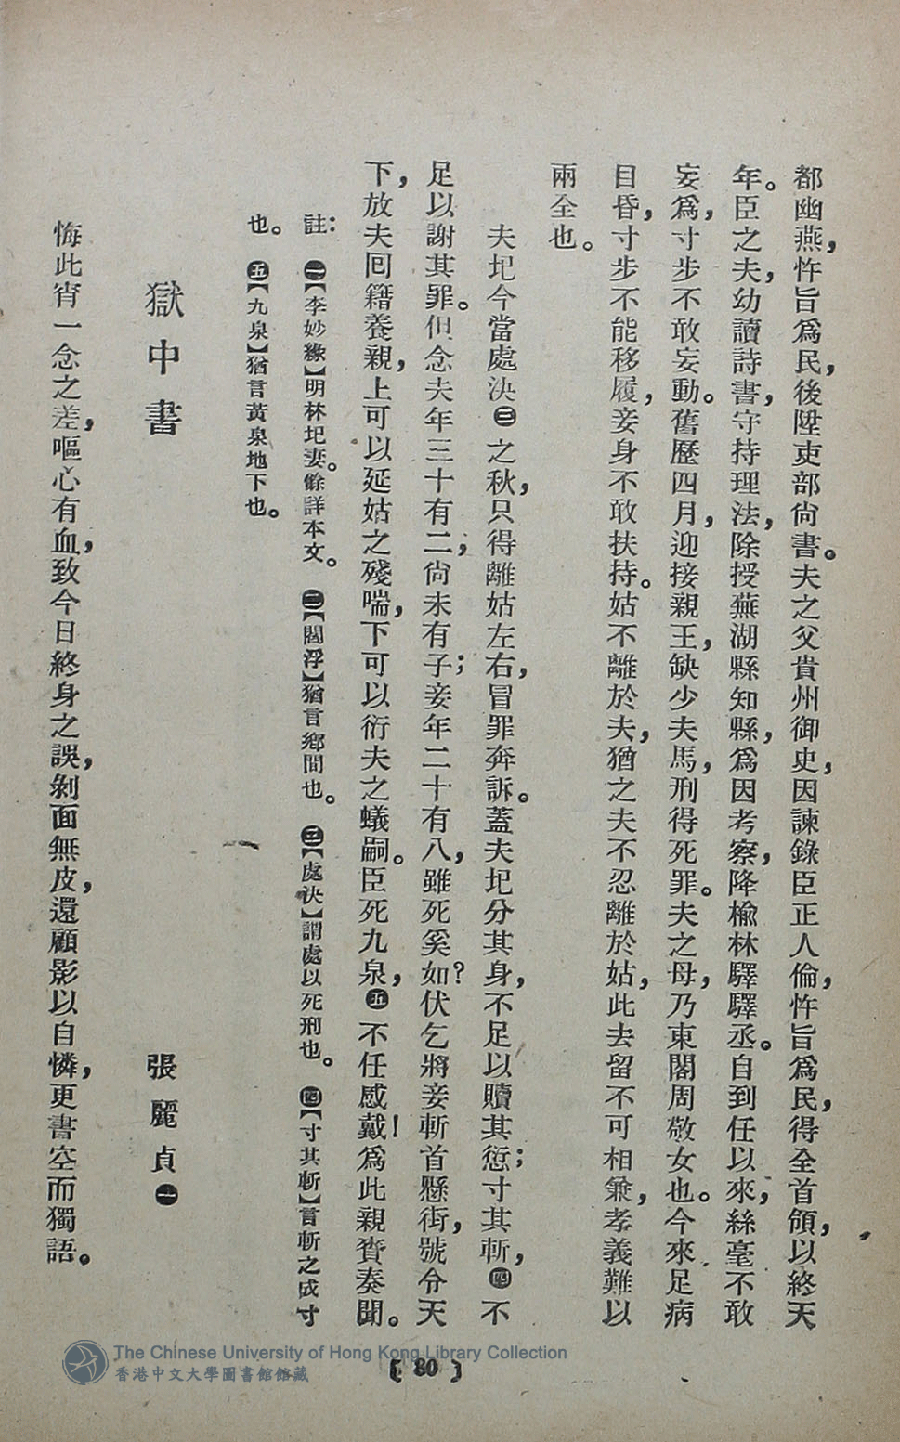 都幽燕，忤旨爲民，後陞吏部尙書。夫之父貴州御史，因諫錄臣正人倫，忤旨爲民，得全首領，以終天
年。臣之夫，幼讀詩書，守持理法，除授蕪湖縣知縣，爲因考察，降榆林驛驛丞。自到任以來，絲毫不敢
妄爲，寸步不敢妄動。舊歷四月，迎接親王，缺少夫馬，刑得死罪。夫之母，乃東閣周敬女也。今來足病
目昏，寸步不能移履，妾身不敢扶持。姑不離於夫，猶之夫不忍離於姑，此去留不可相兼，孝義難以
兩全也。
夫圯今當處決㊂之秋，只得離姑左右，冒罪奔訴。蓋夫圯分其身，不足以贖其愆；寸其斬，㊃不
足以謝其罪。但念夫年三十有二；尙未有子；妾年二十有八，雖死奚如？伏乞將妾斬首懸街，號令天
下，放夫囘籍養親，上可以延姑之殘喘，下可以衍夫之蟻嗣。臣死九泉，㊄不任感戴！爲此親賫奏聞。
註：㊀【李妙緣】明林圯妻。餘詳本文。㊁【閻浮】猶言鄉間也。㊂【處決】謂處以死刑也。㊃【寸其斬】言斬之成寸
也。㊄【九泉】猶言黃泉地下也。
獄中書 張麗貞㊀
悔此宵一念之差，嘔心有血，致今日終身之誤，剝面無皮，還顧影以自憐，更書空而獨語。
【80】
The Chinese University of Hong Kong Library Collection
香港中文大學圖書館館藏